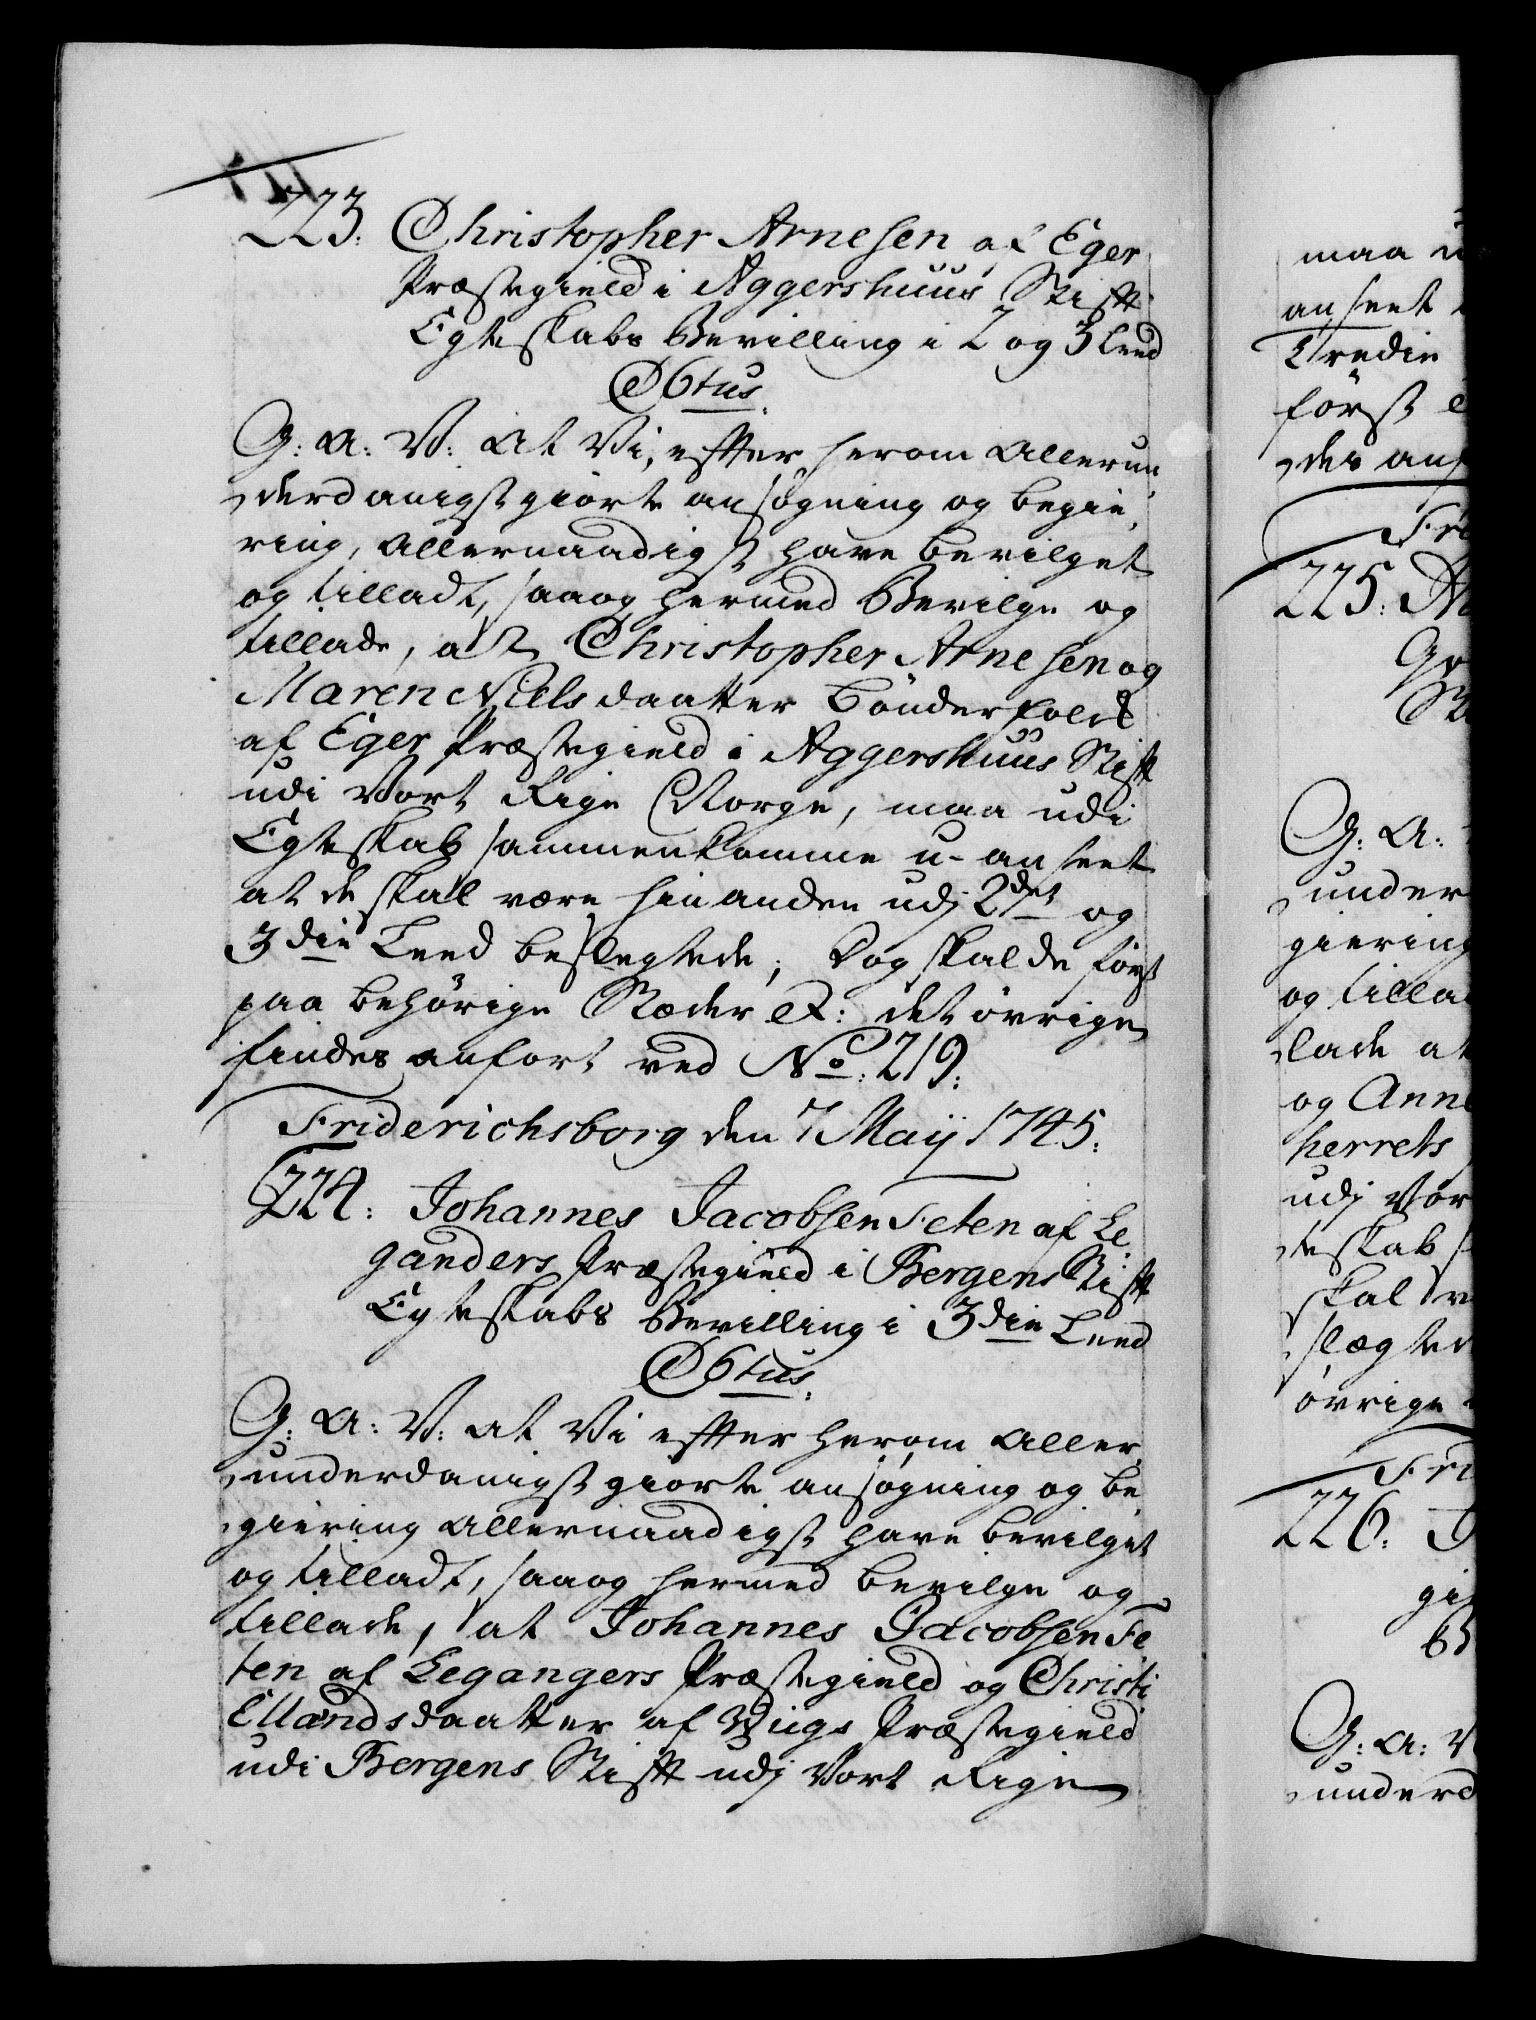 223. Christopher Arnesen af Eger
Præstegield i Aggershuus Stift
Egteskabs Bevilling i 2 og 3 Leed
G: A: V: At Vi, efter herom Allerun
derdanigst giorte ansøgning og begie
ring, Allernaadigst have bevilget
og tilladt, saa og hermed Bevilge og
tillade, at Christopher Arnesen og
Maren Nielsdaatter Bønderfolck
af Eger Præstegield i Aggershuus Stift
udi Vort Rige Norge, maa udi
Egteskab sammenkomme u-anseet
at de skal være hinanden udj 2det og
3die Leed beslegtede; Dog skal de først
paa behørige Stæder &: det øvrige
findes anført ved No: 219:
Friderichsborg den 7 Maij 1745:
224: Johannes Jacobsen Feten af Le
ganders Præstegield i Bergens Stift
Egteskabs Bevilling i 3die Leed
G: A: V: At Vi efter herom Aller
underdanigst giorte ansøgning og be
giering Allernaadigst have bevilget
og tilladt, saa og hermed bevilge og
tillade, at Johannes Jacobsen Fe
ten af Legangers Præstegield og Christi
Ellandsdaatter af Viigs Præstegield
udi Bergens Stift udj Vort Rige
maa
anseet
Tredie
først
des
225:
G: A:
under
giering
og tilla
lade at
og Anne
herrets
udj Vor
teskab
skal
slægted
øvrige
226:
G: A: V
underd